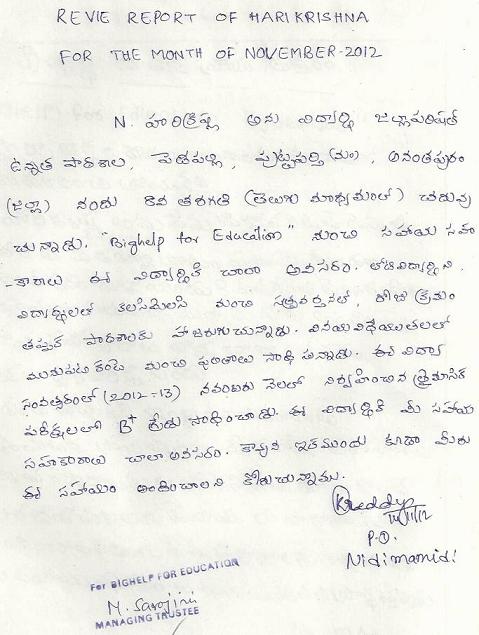 REVIE REPORT OF HARIKRISHNA
FOR THE MONTH OF NOVEMBER-2012
N. హరిక్రిష్ణ అను విద్యార్థి జిల్లాపరిషత్
ఉన్నత పాఠశాల, పెడపల్లి, పుట్టపర్తి (మం), అనంతపురం
(జిల్లా) నందు 8వ తరగతి (తెలుగు మాధ్యమంలో) చదువు
చున్నాడు. "Bighelp for Education" నుంచి సహాయ సహ
-కారాలు ఈ విద్యార్థికి చాలా అవసరం. తోటి
విద్యార్థులతో కలసిమెలసి మంచి సత్ప్రవర్తనతో, రోజూ క్రమం
తప్పక పాఠశాలకు హాజరుగుచున్నాడు. వినయవిధేయతలలో
మునుపటి కంటె మంచి ఫలితాలు సాధిస్తున్నాడు. ఈ విద్యా
సంవత్సరంలో (2012-13) నవంబరు నెలలో నిర్వహించిన త్రైమాసిక
పరీక్షలలో B+ గ్రేడు సాధించాడు. ఈ విద్యార్థికి మీ సహాయ
సహకారాలు చాలా అవసరం. కావున ఇకముందు కూడా మీరు
ఈ సహాయం అందించాలని కోరుచున్నాము.
KReddy
14/11/12
P.O.
Nidimamidi
For BIGHELP FOR EDUCATION
M. Sarojini
MANAGING TRUSTEE